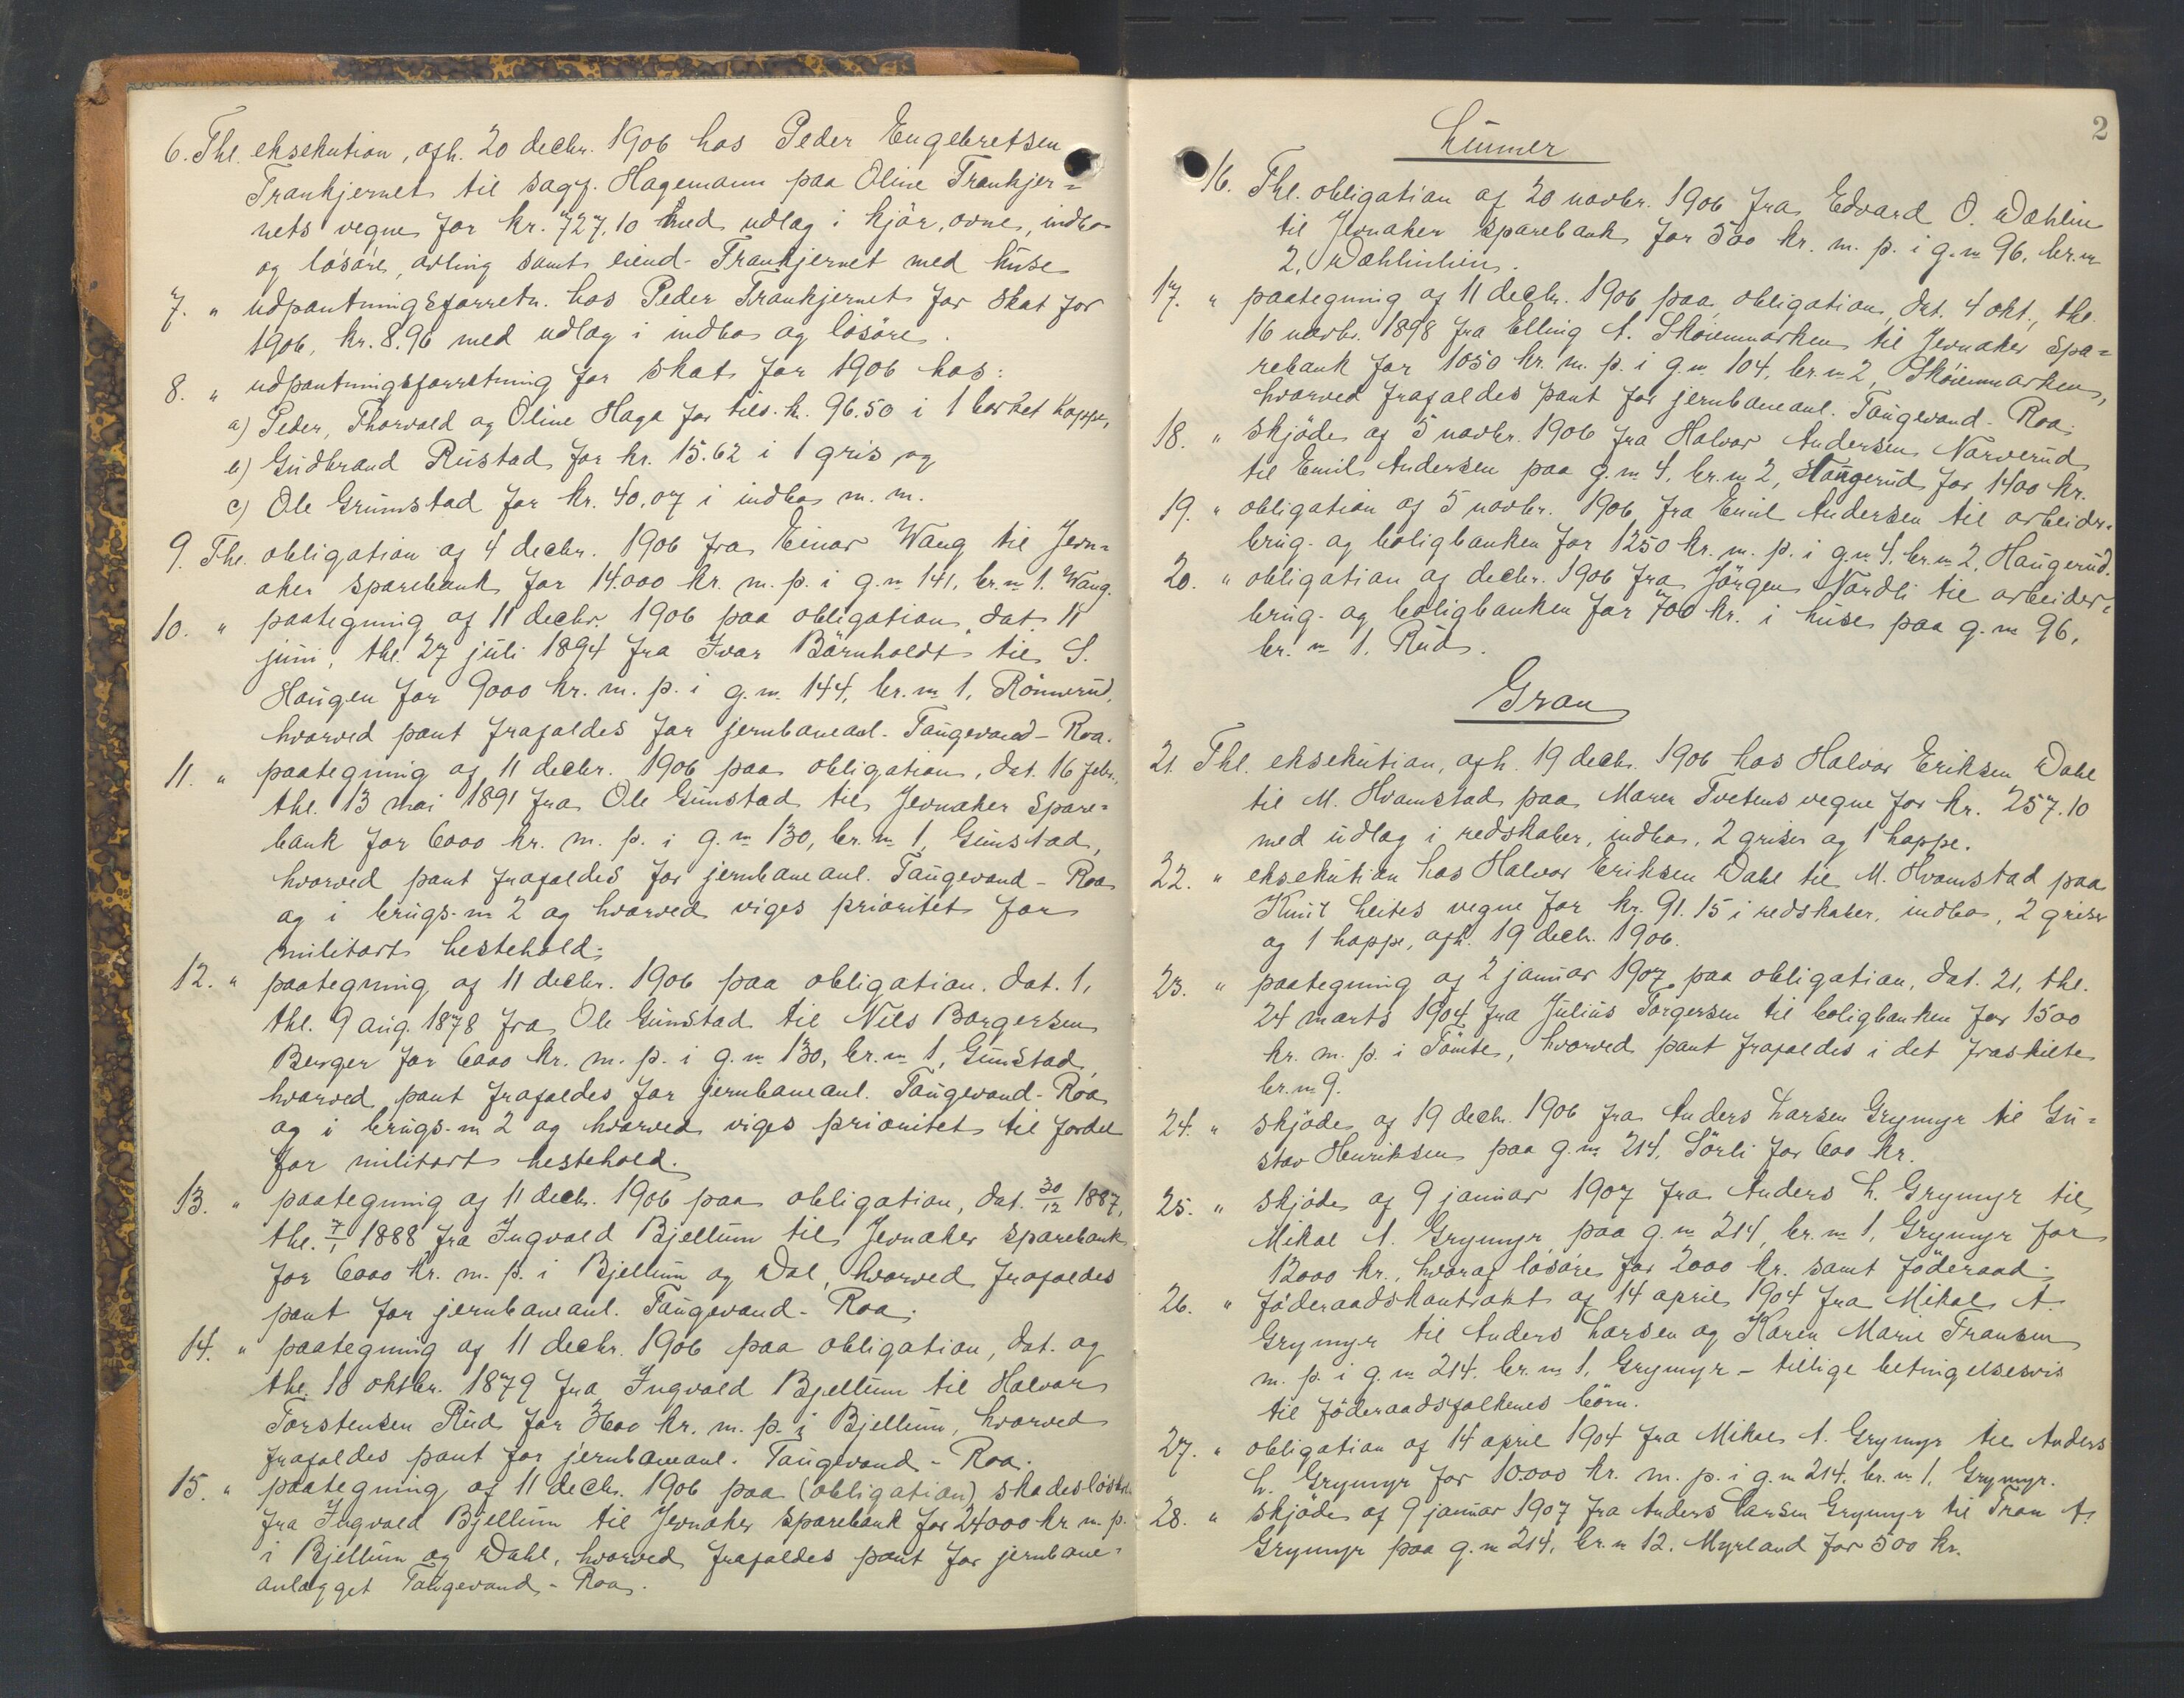 6. Thl. eksekution, afh. 20 decbr. 1906 hos Peder Engebretsen
Trankjernet til sagf. Hagemann paa Oline Trankjer=
nets vegne for kr. 727,10 med udlag i kjör, ovne, indbo
og løsøre, avling samt eiend. Trankjernet med huse
7. " udpantningsforretn. hos Peder Trankjernet for skat for
1906, kr. 8.96 med udlag i indbo og løsøre.
8. " udpantningsforretning for skat for 1906 hos:
a) Peder, Thorvald og Oline Haga for tils. k. 96.50 i 1 borket hoppe,
b) Gudbrand Rustad for kr. 15.62 i 1 gris og
c) Ole Grumstad for kr. 40,07 i indbo m. m.
9. Thl. obligation af 4 decbr. 1906 fra Einar Wang til Jevn=
aker sparebank for 14.000 kr. m. p. i g. n 141, br. n 1. Wang.
10. " paategning af 11 decbr. 1906 paa obligation, dat. 11
juni, thl. 27 juli 1894 fra Ivar Börnholdt til S.
Haugen for 9000 kr. m. p. i g. n. 144, br. n 1, Rönnerud,
hvorved pant frafaldes for jernbaneanl. Taugevand - Roa.
11. " paategning af 11 decbr. 1906 paa obligation, dat. 16 febr.,
thl. 13 mai 1891 fra Ole Gunstad til Jevnaker Spare=
bank for 6000 kr. m. p. i g. n 130, br. n 1, Gunstad,
hvorved pant frafaldes for jernbaneanl. Taugevand - Roa
og i brugs. n 2 og hvorved viges prioritet for
militært hestehold.
12. " paategning af 11 decbr. 1906 paa obligation. dat. 1,
thl. 9 aug. 1878 fra Ole Gunstad til Nils Borgersen
Berger for 6000 kr. m. p. i g. n 130, br. n 1, Gunstad,
hvorved pant frafaldes for jernbaneanl. Taugevand - Roa
og i brugs. n 2 og hvorved viges prioritet til fordel
for militært hestehold.
13. " paategning af 11 decb. 1906 paa obligation, dat. 30/12 1887,
thl. 7/1 1888 fra Ingvald Bjellum til Jevnaker sparebank
for 6000 kr. m. p. i Bjellum og Dal, hvorved frafaldes
pant for jernbaneanl. Taugevand - Roa.
14. " paategning af 11 decbr. 1906 paa obligation, dat. og
thl. 18 oktbr. 1879 fra Ingvald Bjellum til Halvor
Torstensen Rud for 3600 kr. m. p. i Bjellum, hvorved
frafaldes pant for jernbaneanl. Taugevand - Roa.
15. " paategning af 11 decb. 1906 paa (obligation)
fra Ingvald Bjellum til Jevnaker Sparebank for 24000 kr m. p.
i Bjellum og Dahl, hvorved frafaldes pant for jernbane=
anlægget Taugevand - Roa.
2
Lunner
16. Thl. obligation af 20 novbr. 1906 fra Edvard O. Dæhlin
til Jevnaker Sparebank for 500 kr. m. p. i g. n 96, br. n
2,
17. " paategning af 11 decb. 1906 paa obligation, dat. 4 okt., thl.
16 novbr. 1898 fra Elling A. Skøienmarken til Jevnaker Spa=
rebank for 1050 kr. m. p. i g. n 104, br. n 2, Skøienmarken,
hvorved frafaldes pant for jernbaneanl. Taugevand - Roa.
18. " skjøde af 5 novbr. 1906 fra Halvor Andersen Narverud
til Emil Andersen paa g. n 4, br. n 2, Haugerud for 1400 kr.
19. " obligation af 5 novbr. 1906 fra Emil Andersen til arbeider=
brug- og boligbanken for 1250 kr. m. p. i g. n 4. br. n 2. Haugerud.
20. " obligation af decbr. 1906 fra Jörgen Nordli til arbeider=
brug- og boligbanken for 700 kr. i huse paa g. n 96,
br. n 1. Rud.
Gran
21. Thl. eksekution, afh. 19 decb. 1906 hos Halvor Eriksen Dahl
til M. Hvamstad paa Maren Tvetens vegne for kr. 257.10
med udlag i redskaber, indbo, 2 griser og 1 hoppe.
22. " eksekution hos Halvor Eriksen Dahl til M. Hvamstad paa
Knut Leites vegne for kr. 91.15 i redskaber, indbo, 2 griser
og 1 hoppe, afh. 19 decb. 1906.
23. " paategning af 2 januar 1907 paa obligation, dat. 21, thl.
24 marts 1904 fra Julius Torgersen til boligbanken for 1500
kr. m. p. i Tömte, hvorved pant frafaldes i det fraskilte
br. n 9.
24. " skjøde af 19 decb. 1906 fra Anders Larsen Grymyr til Gu=
stav Henriksen paa g. n 214, Sörli for 600 kr.
25. " skjøde af 9 januar 1907 fra Anders L. Grymyr til
Mikal A. Grymyr paa g. n 214, br. n 1, Grymyr for
12000 kr., hvoraf løsøre for 2000 kr. samt föderaad.
26. " föderaadskontrakt af 14 april 1904 fra Mikal A.
Grymyr til Anders Larsen og Karen Marie Fransen
m. p. i g. n 214. br. n 1, Grymyr - tillige betingelsesvis
til föderaadsfolkenes börn.
27. " obligation af 14 april 1904 fra Mikal A. Grymyr til Anders
L. Grymyr for 10.000 kr. m. p. i g. n 214. br. n 1. Grymyr.
28. " skjøde af 9 januar 1907 fra Anders Larsen Grymyr til Fran A.
Grymyr paa g. n 214, br. n 12. Myrland for 500 kr.